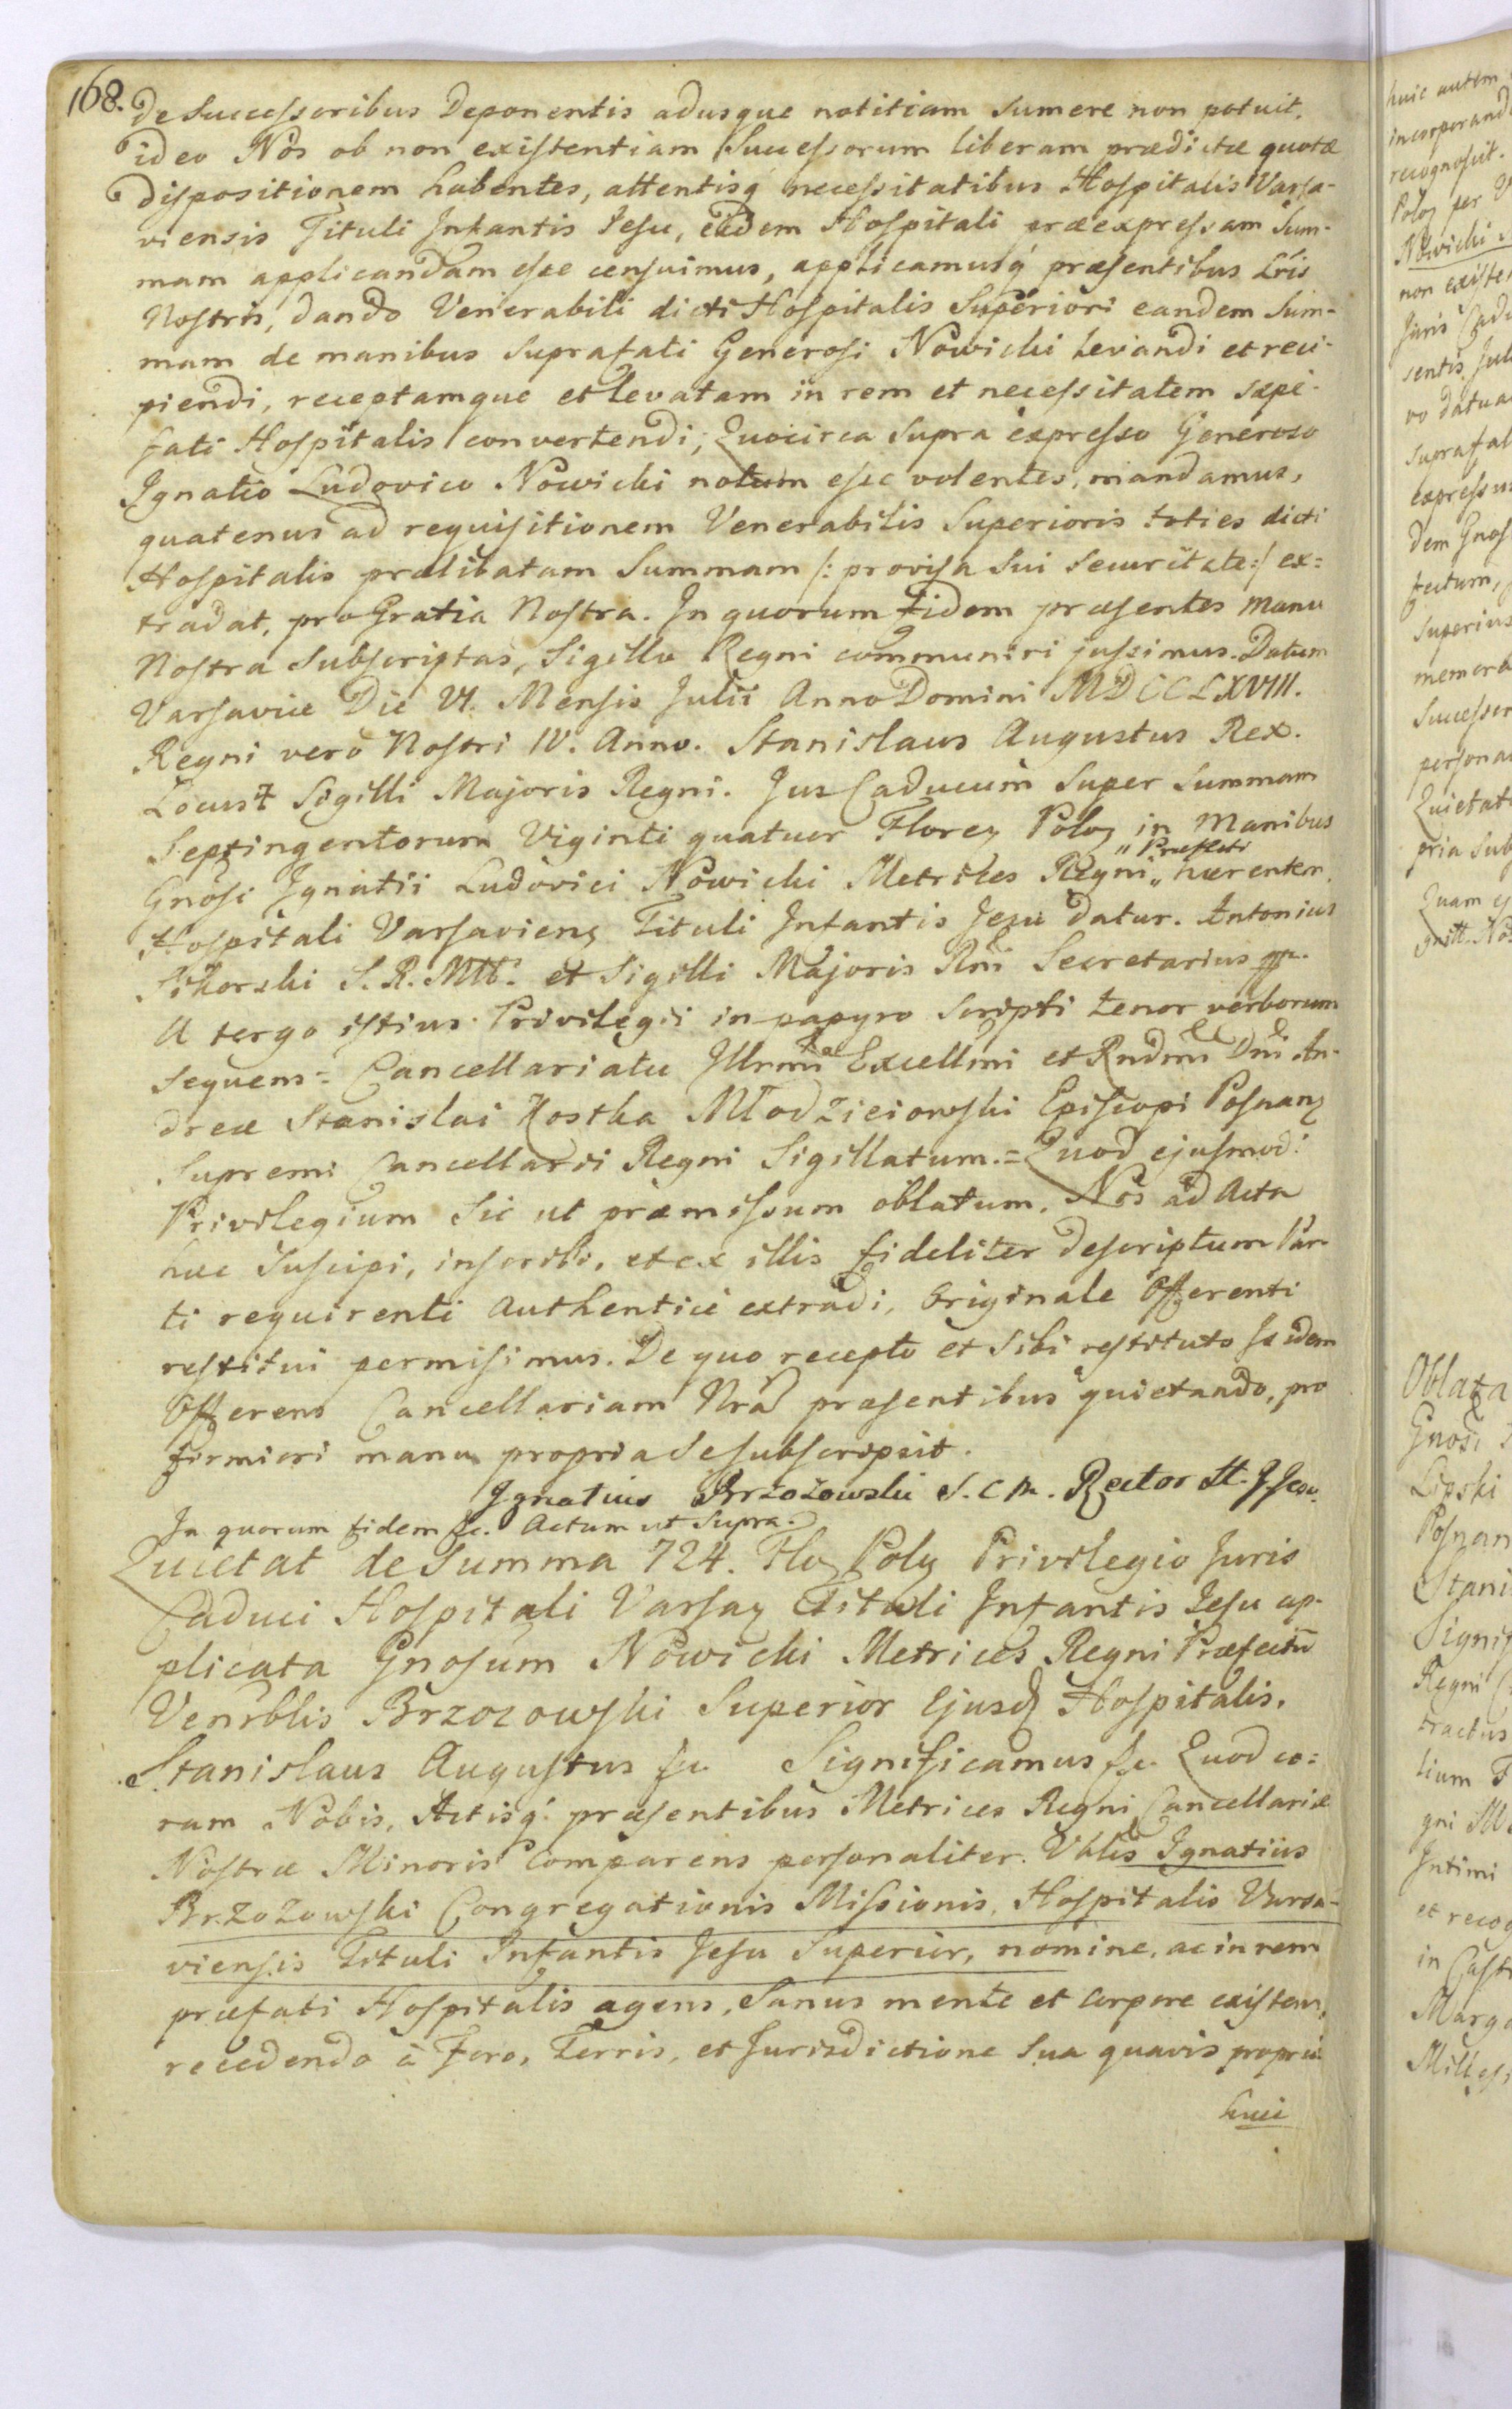 168.
de Successoribus Deponentis adusque notitiam sumere non potuit.
ideo Nos ob non existentiam Successorum liberam prædictæ quotæ
dispositionem habentes, attentisq́ necessitatibus Hospitalis Varsa-
viensis Tituli Infantis Jesu, eidem Hospitali præexpressam Sum-
mam applicandam esse censuimus, applicamusq́ præsentibus Lris
Nostris, dando Venerabili dicti Hospitalis Superiori eandem Sum-
mam de manibus suprafati Generosi Nowicki levandi et reci-
piendi, receptamque et levatam in rem et necessitatem sæpe-
fati Hospitalis convertendi; Quocirca supra expresso Generoso
Ignatio Ludovico Nowicki notum esse volentes, mandamus,
quatenus ad requisitionem Venerabilis Superioris toties dicti
Hospitalis prælibatam Summam /: provisa sui securitate :/ ex=
tradat, pro Gratia Nostra. In quorum fidem præsentes manu
Nostra Subscriptas, Sigillo Regni communiri jussimus. Datum
Varsaviæ Die VI. Mensis Julii Anno Domini MDCCLXVIII.
Regni vero Nostri IV. Anno. Stanislaus Augustus Rex.
Locus ƚ Sigilli Majoris Regni. Jus Caducum super summam
Septingentorum Viginti quatuor Floreȝ Poloȝ in Manibus
Gnosi Ignatii Ludovici Nowicki Metrices Regni „ Præfecti „ hærentem
Hospitali Varsavienȝ Tituli Infantis Jesu datur. Antonius
Sikorski S. R. Mtt. et Sigilli Majoris Rni Secretarius mpr.
A tergo istius Privilegii in papyro scripti tenor verborum
sequens = Cancellariatu Illrmi Excellmi et Rndmi Dni An-
dreæ Stanislai Kostka Młodzieiowski Episcopi Posnanȝ
Supremi Cancellarii Regni Sigillatum. = Quod ejusmodi
Privilegium sic ut præmissum oblatum, Nos ad Acta
hæc suscipi, inscribi, et ex illis fideliter descriptum Par-
ti requirenti authenticè extradi, Originale Offerenti
restitui permisimus. De quo recepto et sibi restituto Is idem
Offerens Cancellariam Nrâ præsentibus quietando, pro
firmiori manu propria se subscripsit.
Ignatius Brzozowski S. C M. Rector H. I. Jesu.
In quorum fidem &c. Actum ut supra.
Quietat de Summa 724. Floȝ Polȝ Privilegio Juris
Caduci Hospitali Varsaȝ Tituli Infantis Jesu ap-
plicata Gnosum Nowicki Metrices Regni Præfectũ
Venrblis Brzozowski Superior Ejusđ Hospitalis.
Stanislaus Augustus &c. Significamus &c. Quod co=
ram Nobis, Actisq́ præsentibus Metrices Regni Cancellariæ
Nostræ Minoris comparens personaliter Vblis Ignatius
Brzozowski Congregationis Missionis, Hospitalis Varsa-
viensis Tituli Infantis Jesu Superior, nomine, ac in rem
præfati Hospitalis agens, Sanus mente et corpore existens,
recedendo à Foro, Terris, et Jurisdictione sua quavis propria
huic
huic autem
incorporand
recognoscit.
Poloȝ per
Nowicki
non existen
Juris Cadu
sentis Jul
vo datua
suprafat
expressu
dem Gnos
fectum,
superius
memora
Successor
persona
Quietat
pria sub
Quam
Oblata
Gnosi
Lipski
Posnan
Stani
Signif
Regni
tractus
lium
gni
Intimi
et recog
in Cast
Marg